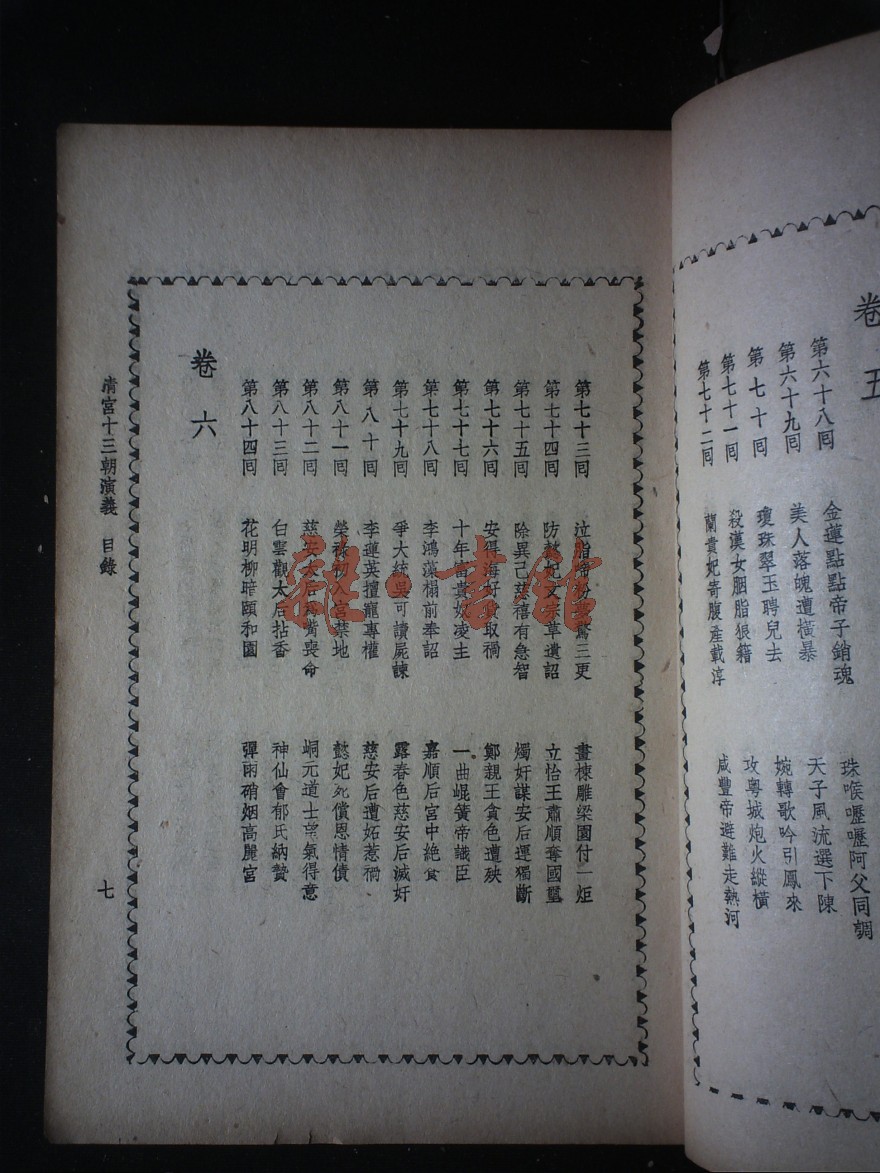 卷五
第六十八囘 金蓮點點帝子銷魂 珠喉嚦嚦阿父同調
第六十九囘 美人落魄遭橫暴 天子風流選下陳
第七十囘 瓊珠翠玉聘兒去 婉轉歌吟引鳳來
第七十一囘 殺漢女胭脂狼籍 攻粵城炮火縱橫
第七十二囘 蘭貴妃寄腹產載淳 咸豐帝避難走熱河
第七十三囘 泣脂啼粉驚三更 畫棟雕梁園付一炬
第七十四囘 防懿妃文宗草遺詔 立怡王肅順奪國璽
第七十五囘 除異己慈禧有急智 燭奸謀安后運獨斷
第七十六囘 安得海好貨取禍 鄭親王貪色遭殃
第七十七囘 十年富貴奴凌主 一曲崐簧帝識臣
第七十八囘 李鴻藻榻前奉詔 嘉順后宮中絶食
第七十九囘 爭大統吳可讀屍諫 露春色慈安后滅奸
第八十囘 李蓮英擅寵專權 慈安后遭妬惹禍
第八十一囘 榮祿初入宮禁地 懿妃死償恩情債
第八十二囘 慈安太后喪命 峒元道士望氣得意
第八十三囘 白雲觀太后拈香 神仙會郁氏納贄
第八十四囘 花明柳暗頤和園 彈雨硝烟高麗宮
卷六
清宮十三朝演義 目錄
七
雜·書館